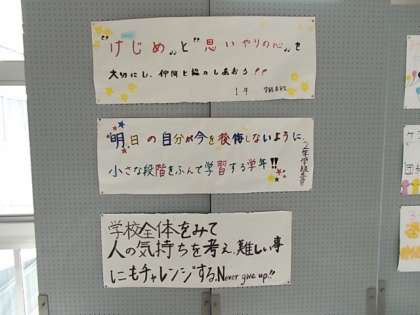 "けじめ"と"思いやりの心"を
大切にし、仲間と協力しあおう!!
1年 学級委員
"明日の自分が今を後悔しないように、
小さな段階をふんで学習する学年!!
2年学級委員
学校全体をみて
人の気持ちを考え、難しい事
にもチャレンジする。Never give up!!